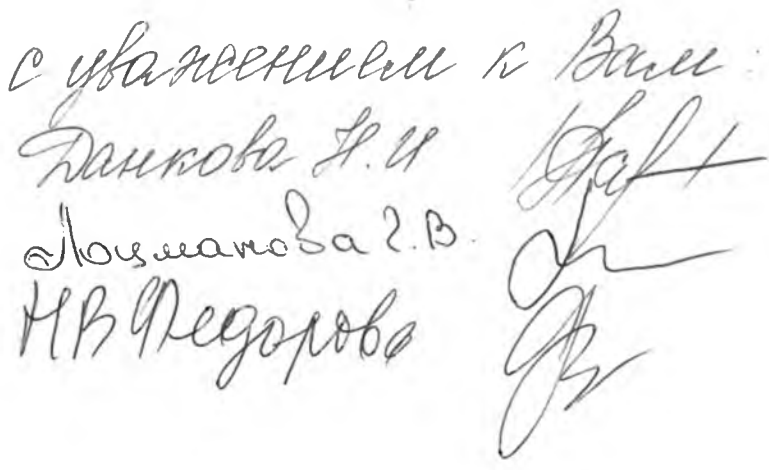 с уважением к Вам
Данкова Н.И
Лоцманова Г.В.
НВ Федорова